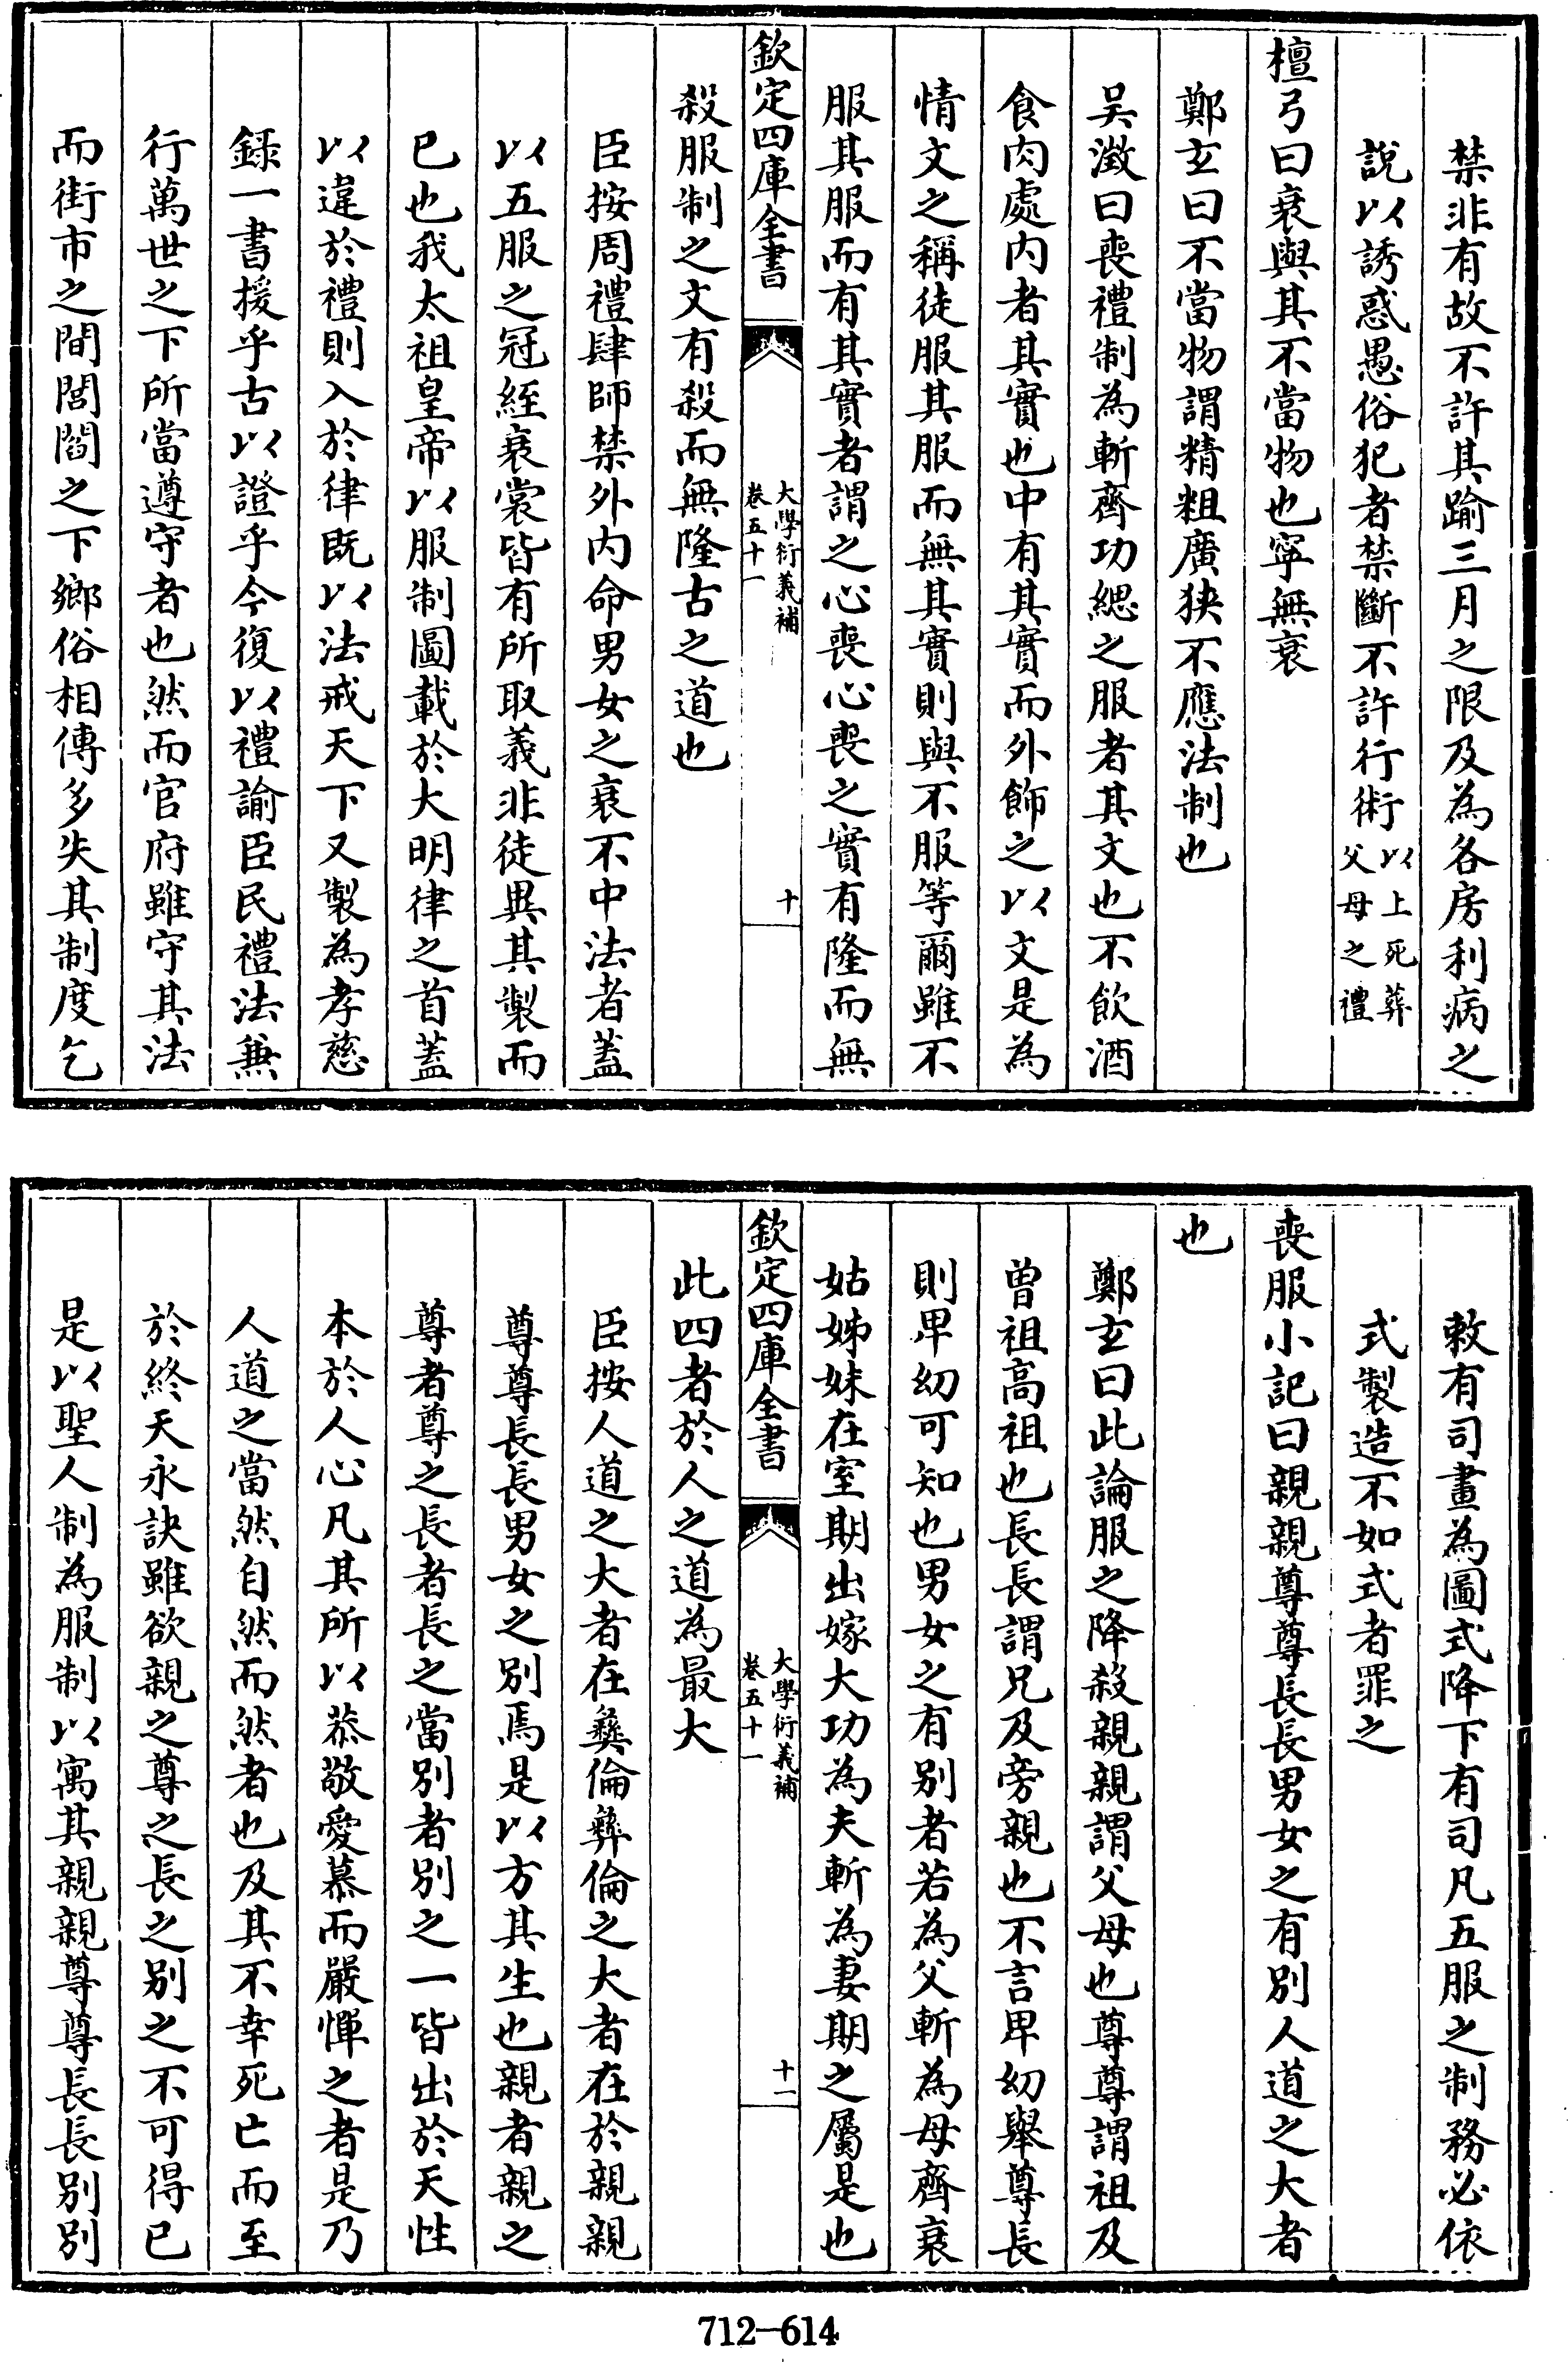 禁非有故不許其踰三月之限及為各房利病之
說以誘惑愚俗犯者禁斷不許行術以上死葬
父母之禮
檀弓曰衰與其不當物也寧無衰
鄭玄曰不當物謂精粗廣狹不應法制也
吴澂曰喪禮制為斬齊功緦之服者其文也不飲酒
食肉處内者其實也中有其實而外飾之以文是為
情文之稱徒服其服而無其實則與不服等爾雖不
服其服而有其實者謂之心喪心喪之實有隆而無
欽定四庫全書
大學衍義補
卷五十一
十
殺服制之文有殺而無隆古之道也
臣按周禮肆師禁外内命男女之衰不中法者蓋
以五服之冠絰衰裳皆有所取義非徒異其製而
已也我太祖皇帝以服制圖載於大明律之首蓋
以違於禮則入於律既以法戒天下又製為孝慈
録一書援乎古以證乎今復以禮諭臣民禮法兼
行萬世之下所當遵守者也然而官府雖守其法
而街市之間閭閻之下鄉俗相傳多失其制度乞
敕有司畫為圖式降下有司凡五服之制務必依
式製造不如式者罪之
喪服小記曰親親尊尊長長男女之有别人道之大者
也
鄭玄曰此論服之降殺親親謂父母也尊尊謂祖及
曾祖高祖也長長謂兄及旁親也不言卑幼舉尊長
則卑幼可知也男女之有别者若為父斬為母齊衰
姑姊妹在室期出嫁大功為夫斬為妻期之屬是也
欽定四庫全書
大學衍義補
卷五十一
十一
此四者於人之道為最大
臣按人道之大者在彝倫彝倫之大者在於親親
尊尊長長男女之别焉是以方其生也親者親之
尊者尊之長者長之當别者别之一皆出於天性
本於人心凡其所以恭敬愛慕而嚴惲之者是乃
人道之當然自然而然者也及其不幸死亡而至
於終天永訣雖欲親之尊之長之别之不可得已
是以聖人制為服制以寓其親親尊尊長長别别
712-614